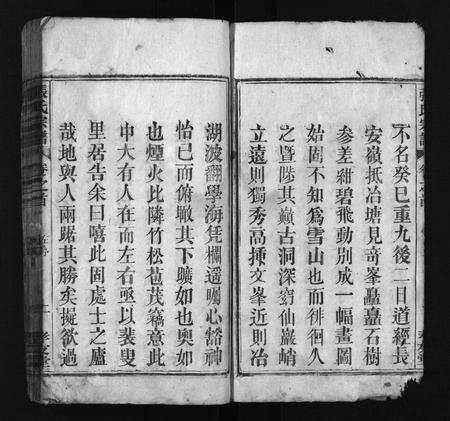 不名癸巳重九後二日道經長
安嶺抵冶塘見奇峯矗矗石樹
參差紺碧飛動別成一幅畫圖
始固不知爲雪山也而徘徊人
之暨陟其巔古洞深窈仙巖崝
立遠則獨秀高揷文峯近則冶
湖波翻學海凭欄遥矚心豁神
怡已而俯瞰其下曠如也奥如
也煙火比隣竹松苞茂竊意此
中大有人在而左右亟以裴叟
里居告余曰嘻此固處士之廬
哉地與人兩踞其勝矣擬欲過
張氏宗譜